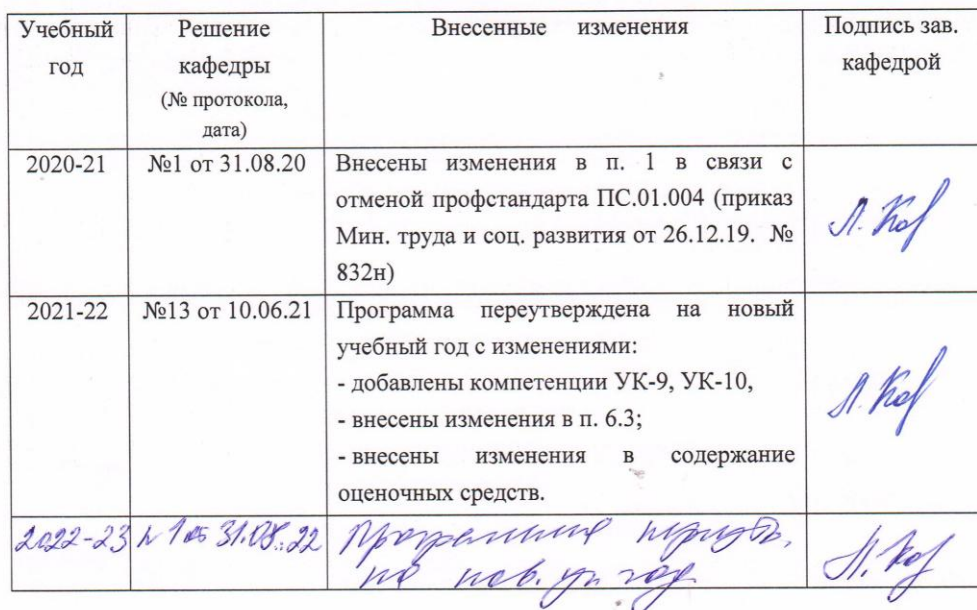 Учебный год
Решение кафедры (№ протокола, дата)
Внесенные изменения
Подпись зав. кафедрой
2020-21
№1 от 31.08.20
Внесены изменения в п. 1 в связи с
отменой профстандарта ПС.01.004 (приказ
Мин. труда и соц. развития от 26.12.19. №
832н)
2021-22
№13 от 10.06.21
Программа переутверждена на новый
учебный год с изменениями:
- добавлены компетенции УК-9, УК-10,
- внесены изменения в п. 6.3;
- внесены изменения в содержание
оценочных средств.
2022-23
№1 от 31.08.22
Программа
на нов. уч. год